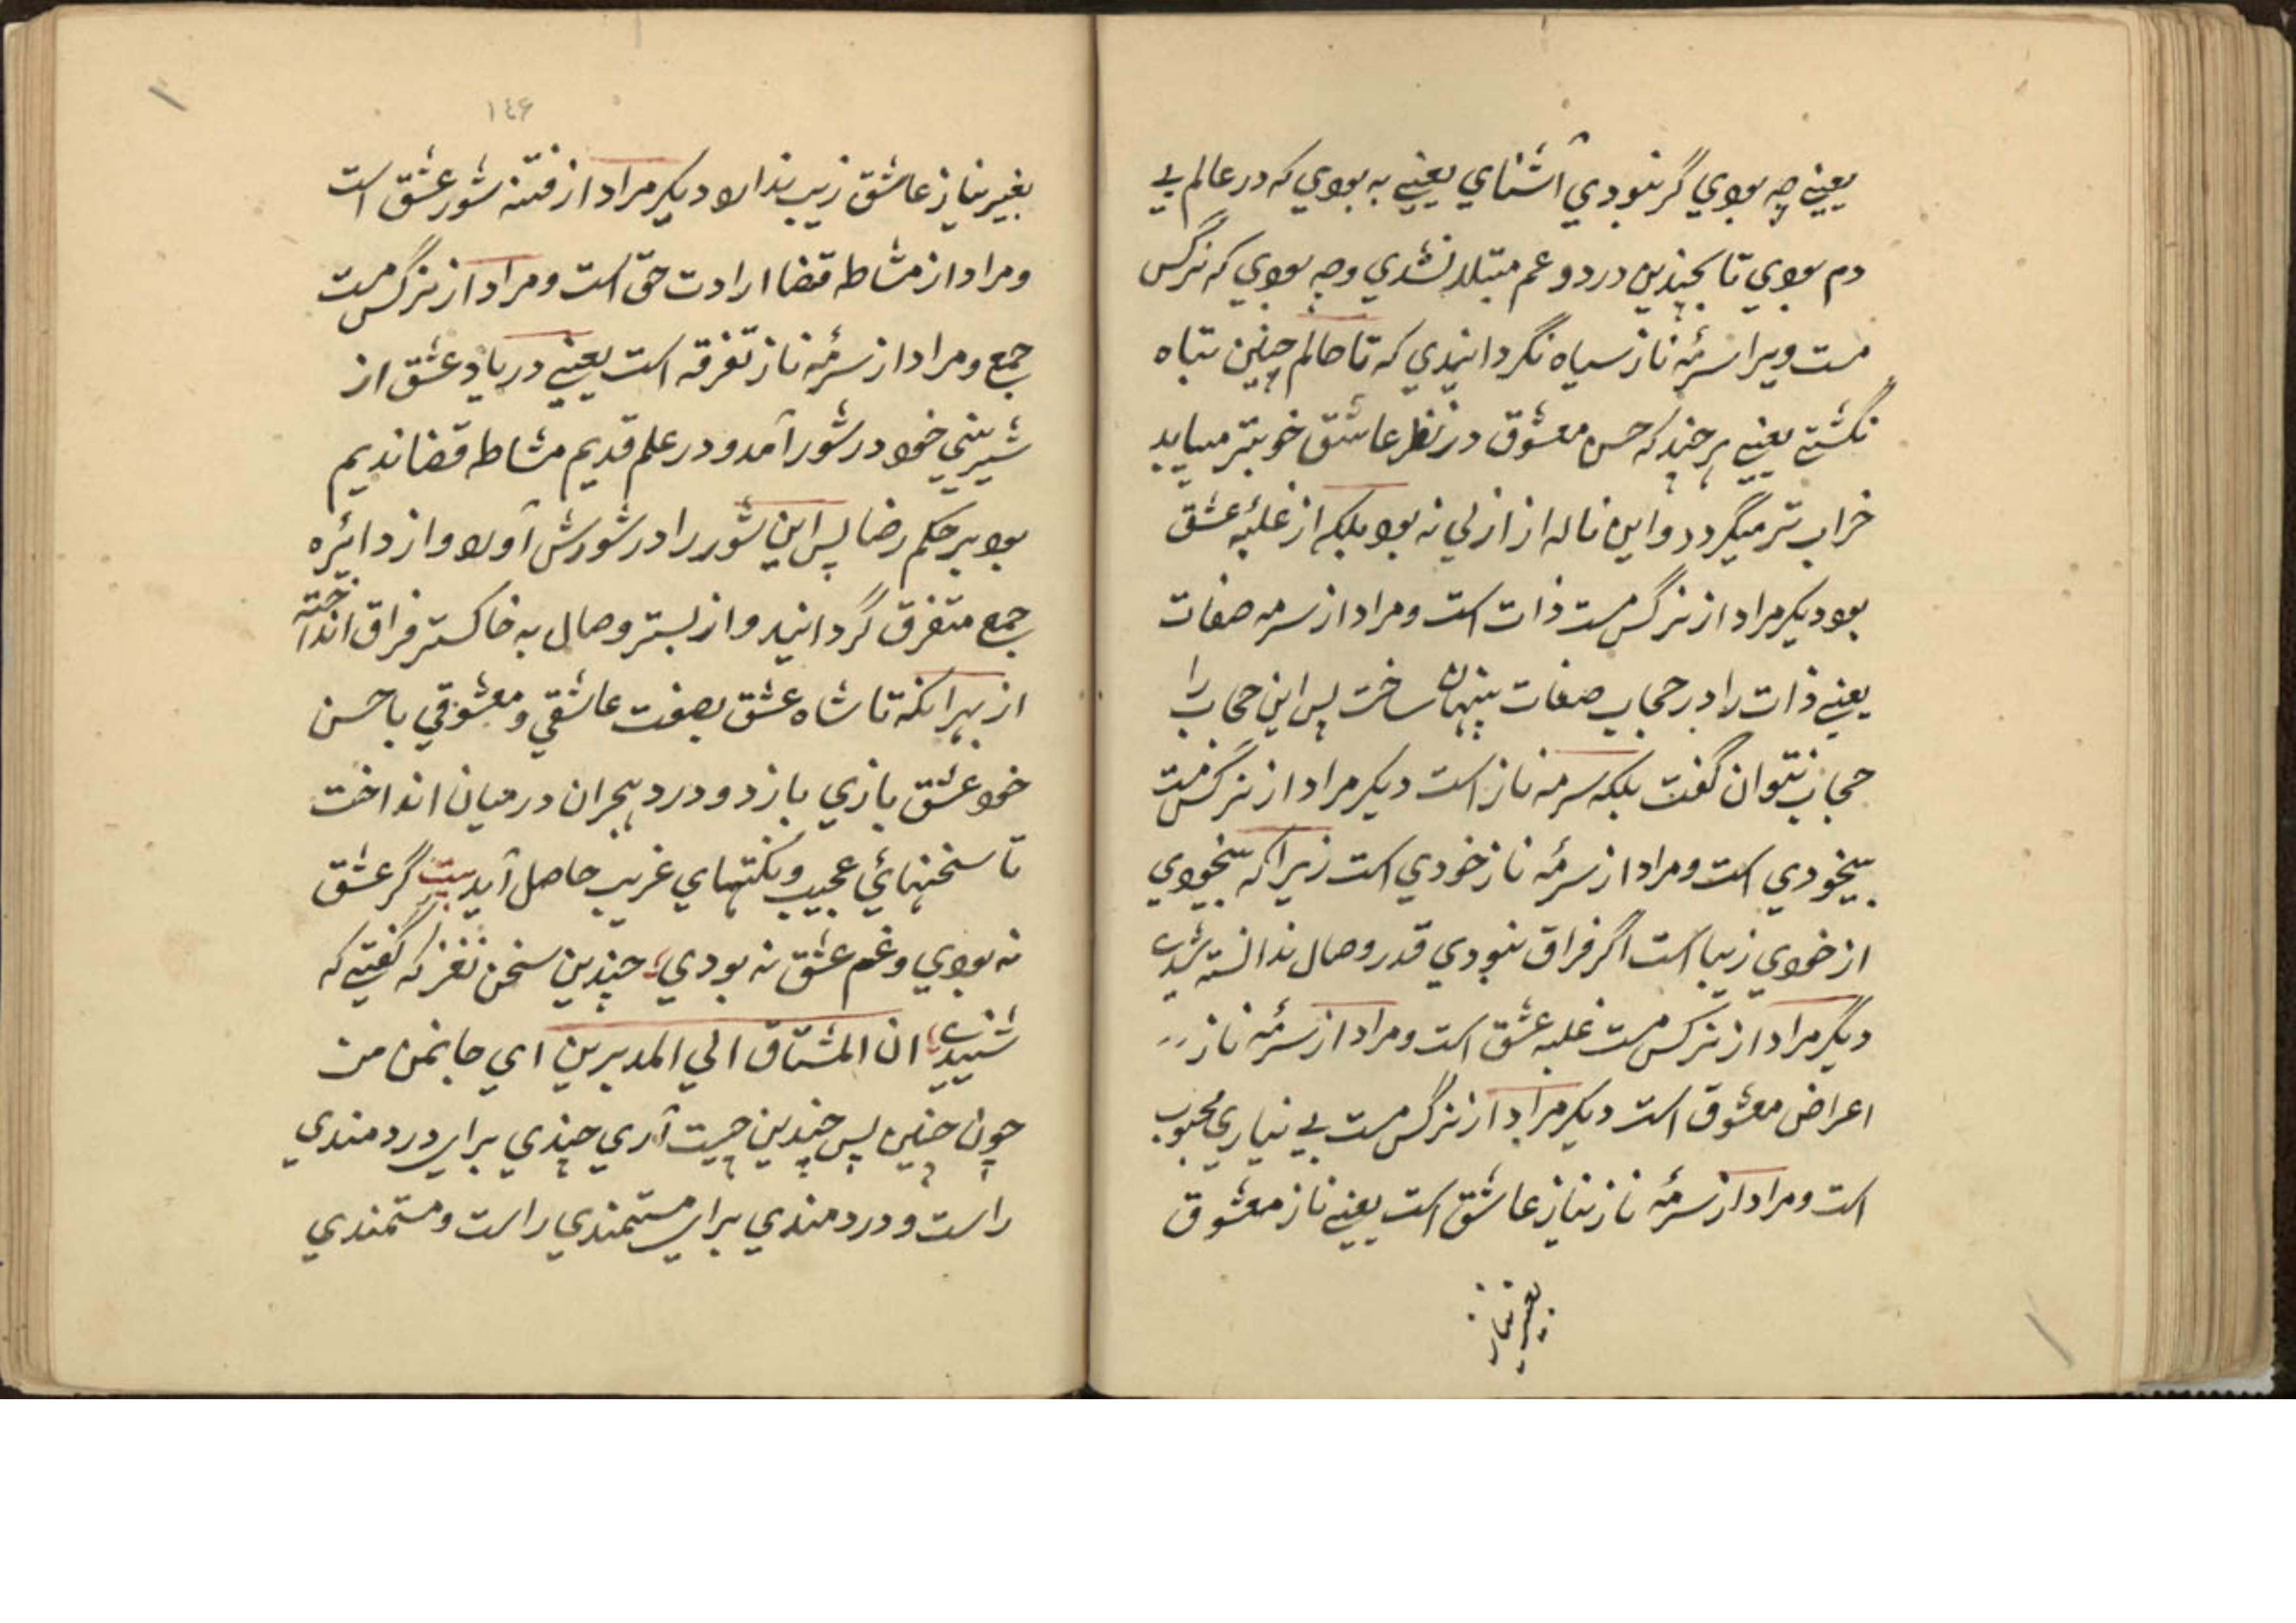 یعنے چہ بودي گر نبودي آشنايي یعنے بہ بودي کہ در عالم بے
دم بودي تا بچندین درد و غم مبتلا نشدي و چہ بودي کہ نرگس
مست ویرا سرمۂ ناز سیاہ نگردانیدي کہ تا حالم چنین تباہ
نگشتے یعنے ہرچند کہ حسن معشوق در نظر عاشق خوبتر میباید
خراب تر میگردد و این نالہ از ازلي نہ بود بلکہ از غلبۂ عشق
بود دیکر مراد از نرگس مست ذات است و مراد از سرمہ صفات
یعنے ذات را در حجاب صفات پنہان ساخت پس این حجاب را
حجاب نتوان گفت بلکہ سرمہ ناز است دیکر مراد از نرگس مست
بیخودي است و مراد از سرمۂ ناز خودي است زیرا کہ بیخودي
از خودي زیبا است اگر فراق نبودي قدر وصال ندانستہ شدے
دیگر مراد از نرکس مست غلبہ عشق است و مراد از سرمۂ ناز
اعراض معشوق است دیکر مراد از نرگس مست بے نیازي محبوب
است و مراد از سرمۂ ناز نیاز عاشق است یعنے ناز معشوق
بغیر نیاز
۱٤۶
بغیر نیاز عاشق زیب ندارد دیکر مراد از فتنہ شور عشق است
و مراد از مشاطہ قضا ارادت حق است و مراد از نرگس مست
جمع و مراد از سرمۂ ناز تفرقہ است یعنے در یاد عشق از
شیرینی خود در شور آمد و در علم قدیم مشاطہ قضا ندیم
بود بر حکم رضا پس این شور را در شورش آورد و از دائرہ
جمع متفرق گردانید و از بستر وصال بہ خاکستر فراق انداختہ
از بہر آنکہ تا شاہ عشق بصفت عاشقي و معشوقي با حسن
خود عشق بازي بازد و درد ہجران درمیان انداخت
تا سخنہائي عجیب و نکتہاي غریب حاصل آید بیت گر عشق
نہ بودي و غم عشق نہ بودي چندین سخن نغز کہ گفتے کہ
شنیدے ان المشتاق الي المدبرین اي جانمن من
چون چنین پس چندین چیست آري چندي براي دردمندي
راست و دردمندي براي مستمندي راست و مستمندي